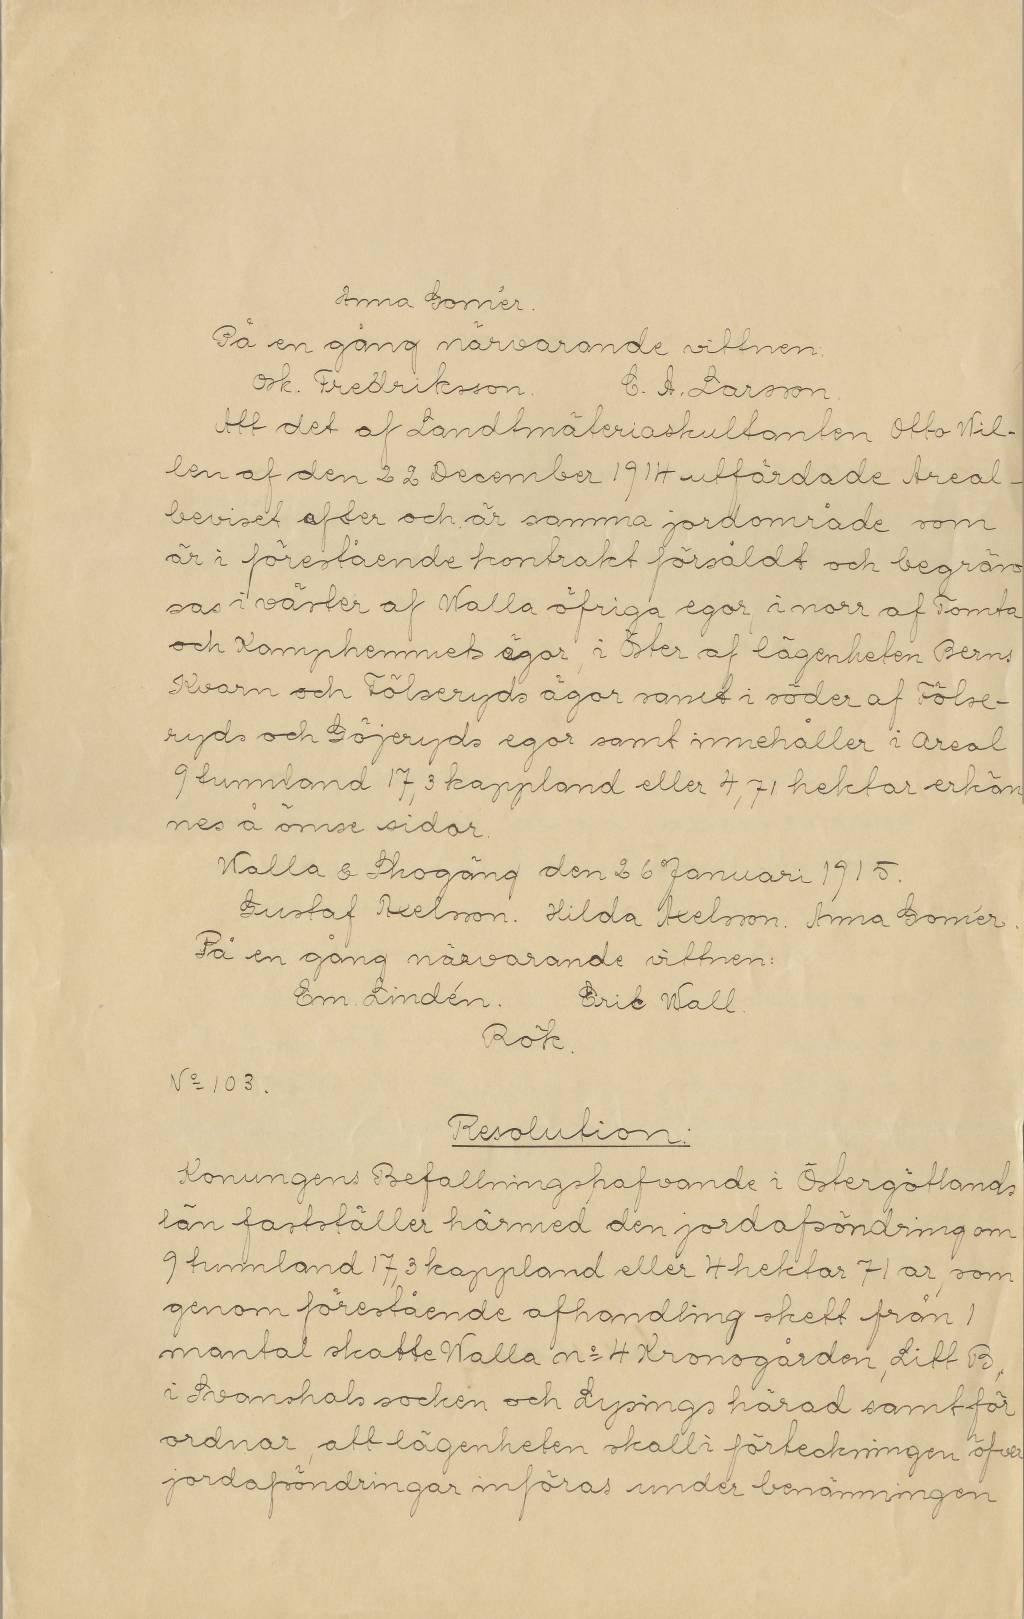 Anna Gomér.
På en gång närvarande vittnen:
Osk. Fredriksson. C. A. Larsson.
Att det af Landtmäteriaskultanten Otto Wil-
len af den 22 December 1914 utfärdade Areal-
beviset efter och är samma jordområde som
är i förestående kontrakt försåldt och begrän
sas i väster af Walla öfriga egor, i norr af Tomta
och Kamphemmets ägor, i Öster af lägenheten Berns
Kvarn och Fölseryds ägor samt i söder af Fölse-
ryds och Göjeryds egor samt innehåller i Areal
9 tunnland 17,3 kappland eller 4,71 hektar erkän
nes å ömse sidor.
Walla & Skogäng den 26 Januari 1915.
Gustaf Axelsson. Hilda Axelsson. Anna Gomér.
På en gång närvarande vittnen:
Em. Lindén. Eric Wall.
Rök.
No 103.
Resolution:
Konungens Befallningshafvande i Östergötlands
län fastställer härmed den jordafsöndring om
9 tunnland 17,3 kappland eller 4 hektar 71 ar, som
genom förestående afhandling skett från 1
mantal skatte Walla no 4 Kronogården, Litt B,
i Svanshals socken och Lysings härad samt för
ordnar, att lägenheten skall i förteckningen öfver
jordafsöndringar införas under benämningen